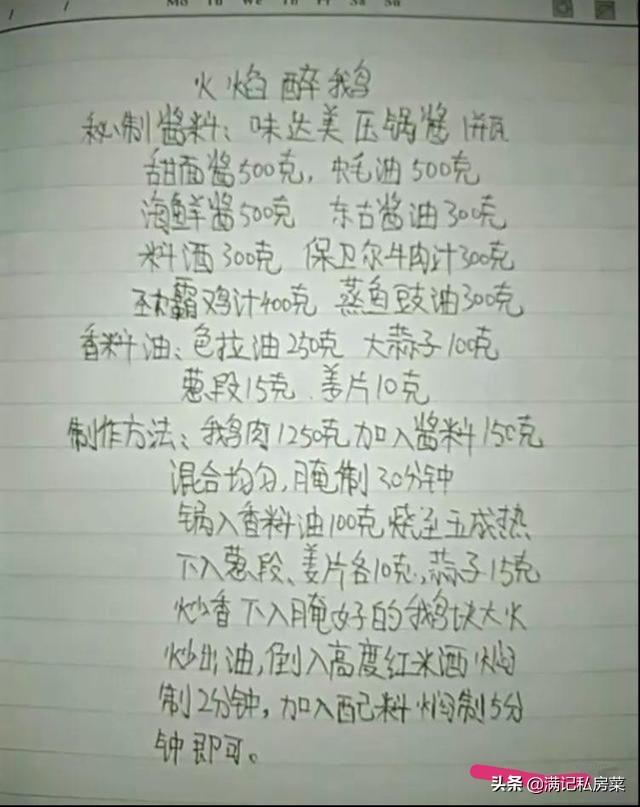 Mo Tu We Th Fr Sa Su
火焰醉鹅
秘制酱料：味达美压锅酱1瓶
甜面酱500克，蚝油500克
海鲜酱500克 东古酱油300克
料酒300克 保卫尔牛肉汁300克
劲霸鸡汁400克 蒸鱼豉油300克
香料油：色拉油250克 大蒜子100克
葱段15克、姜片10克
制作方法：鹅肉1250克加入酱料150克
混合均匀，腌制30分钟
锅入香料油100克烧至五成热
下入葱段、姜片各10克，蒜子15克
炒香下入腌好的鹅块大火
炒出油，倒入高度红米酒焖
制2分钟，加入配料焖制5分
钟即可。
头条@满记私房菜